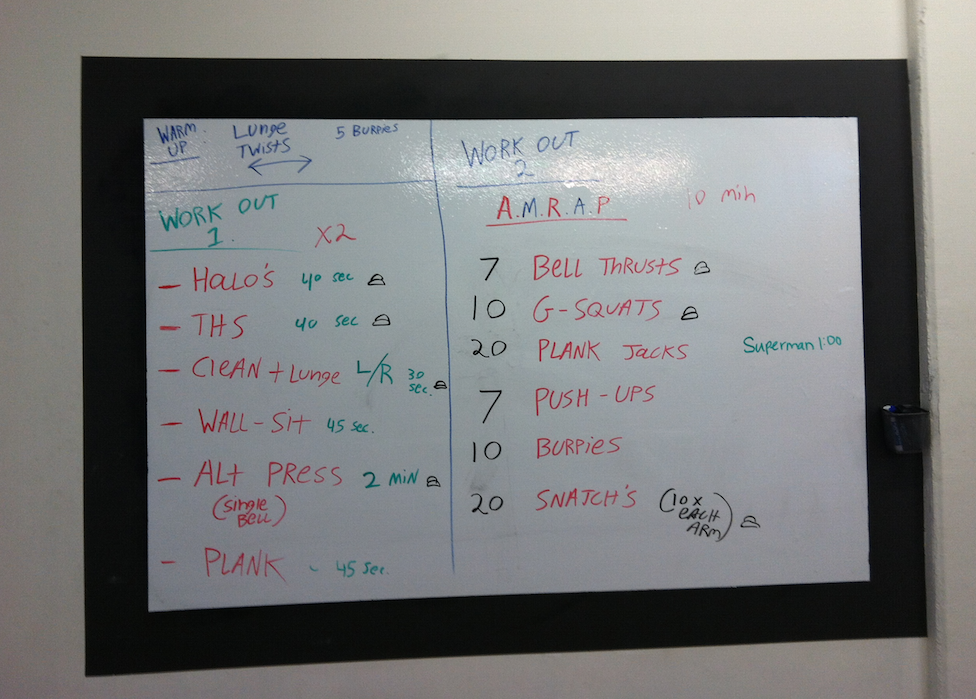 WARM UP
Lunge TWISTS
5 BURPIES
WORK OUT 1.
X2
– HALO'S 40 sec
– THS 40 sec
– CLEAN + Lunge L/R 30 sec.
– WALL-Sit 45 sec.
– ALT PRESS 2 MIN
(single BELL)
– PLANK - 45 Sec.
WORK OUT 2
A.M.R.A.P 10 min
7 BELL ThRUSTS
10 G-SQUATS
20 PLANK JACKS Superman 1:00
7 PUSH-UPS
10 BURPIES
20 SNATCH'S (10x EACH ARM)